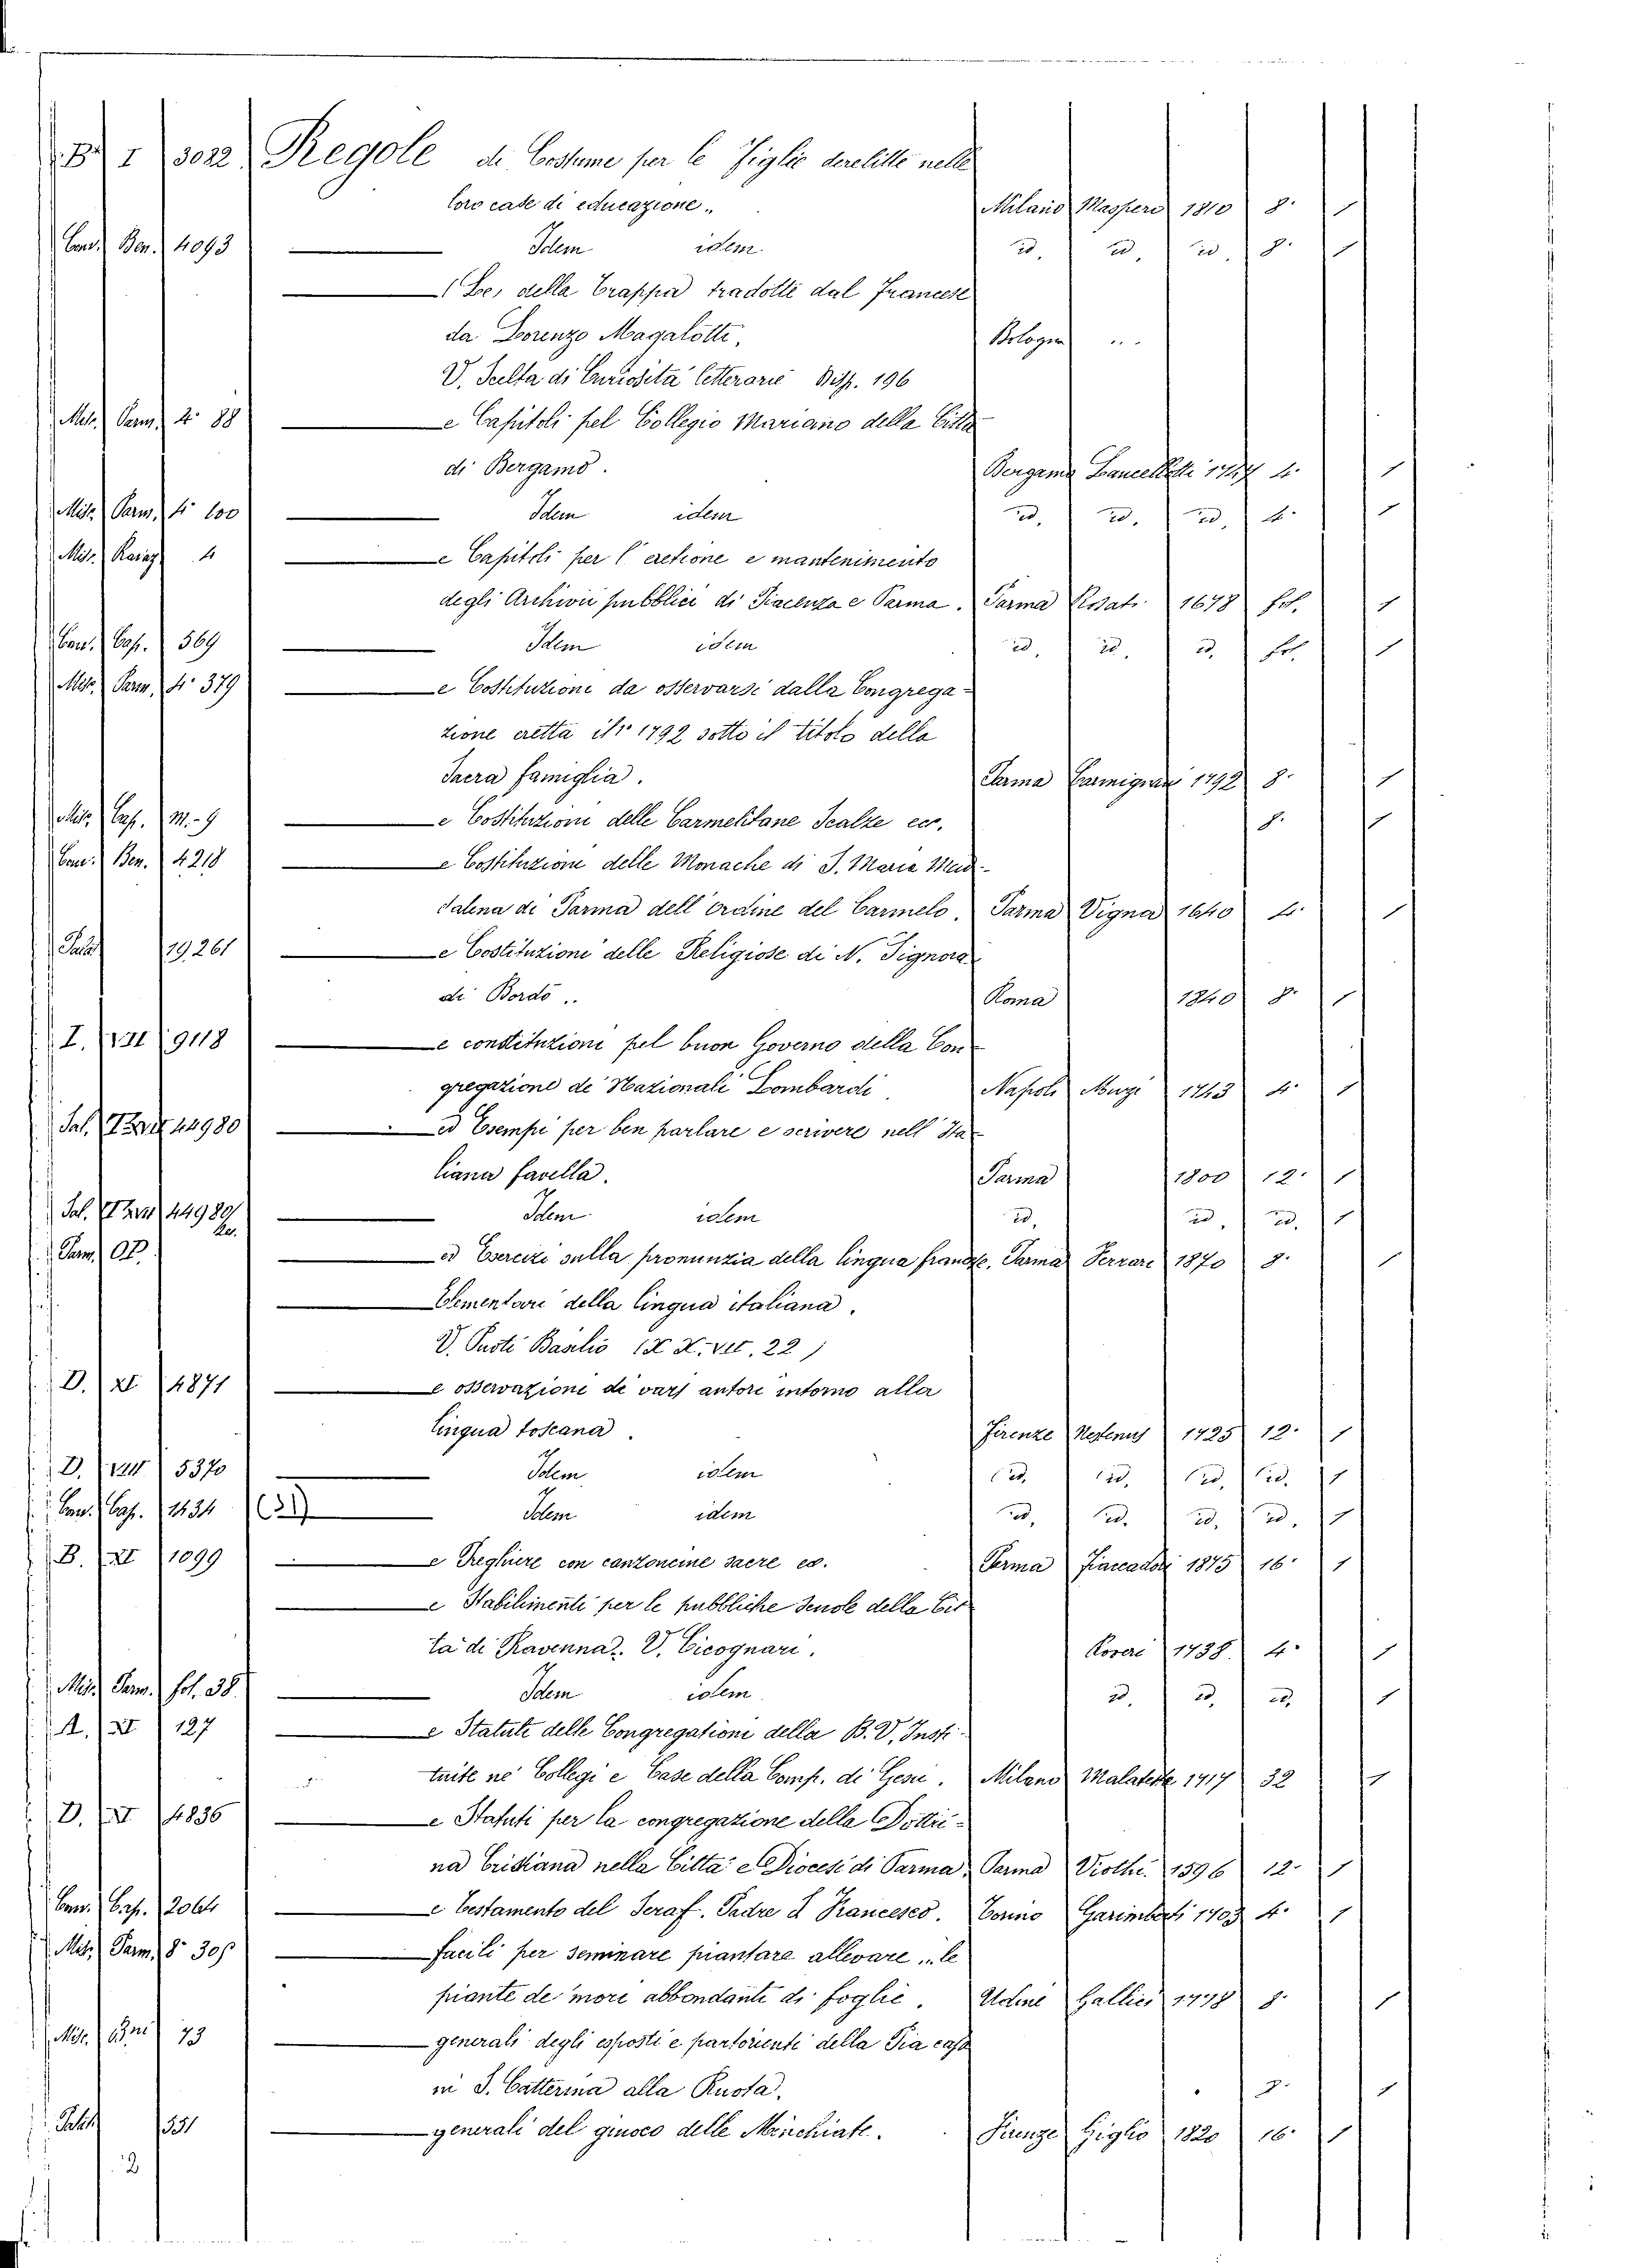 B. I 3022 Regole di Costume per le Figlie derelitte nelle
loro case di educazione.. Milano Maspero 1810 8° 1
Cand. Ben. 4093 — Idem idem id. id. id. 8° 1
— (Le) della Trappa tradotte dal Francese
da Lorenzo Magalotti, Bologna ...
V. Scelta di Curiosità letterarie Disp. 196
Misc. Parm. 4° 88 — e Capitoli pel Collegio Mariano della Città
di Bergamo. Bergamo Lancellotti 1747 4° 1
Misc. Parm. 4° 100 — Idem idem id. id. id. 4° 1
Misc. 4 — e Capitoli per l'eretione e mantenimento
degli Archivii pubblici di Piacenza e Parma. Parma Rosati 1678 fol. 1
Cap. 569 — Idem idem id. id. id. fol. 1
Misc. Parm. 4° 379 — e Costituzioni da osservarsi dalla Congrega-
zione eretta il 1792 sotto il titolo della
Sacra famiglia. Parma Carmignani 1792 8° 1
Misc. Cap. M.-9 — e Costituzioni delle Carmelitane Scalze ecc. 8° 1
Ben. 4218 — e Costituzioni delle Monache di S. Maria Mad-
dalena di Parma dell'ordine del Carmelo. Parma Vigna 1640 4° 1
Palat 19261 — e Costituzioni delle Religiose di N. Signora
di Bordò.. Roma 1840 8° 1
I. VII 9118 — e constituzioni pel buon Governo della Con-
gregazione de' Nazionali Lombardi. Napoli Muzi 1743 4° 1
Sal. 44980 — ed Esempi per ben parlare e scrivere nell'Ita-
liana favella. Parma 1800 12° 1
Sal. 44980 — Idem idem id. id. id. 1
Parm. — ed Esercizi sulla pronunzia della lingua francse. Parma Ferrari 1870 8° 1
— Elementari della lingua italiana.
V. Puoti Basilio (X X. VII. 22)
D. XI 4871 — e osservazioni di varj autori intorno alla
lingua toscana. Firenze Nestenus 1725 12° 1
D. VIII 5370 — Idem idem id. id. id. id. 1
Cap. 1434 (31) — Idem idem id. id. id. id. 1
B. XI 1099 — e Preghiere con canzoncine sacre ec. Parma Fiaccadori 1875 16° 1
— e Stabilimenti per le pubbliche Scuole della Cit-
tà di Ravenna.. V. Cicognari. Roveri 1738. 4° 1
Misc. Parm. fol. 38 — Idem idem id. id. id. 1
A. XI 127 — e Statuti delle Congregationi della B.V. Insti-
tuite ne' Collegi e Case della Comp. di Gesù. Milano Malatesta 1717 32 1
D. XI 4836 — e Statuti per la congregazione della Dottri-
na Cristiana nella Città e Diocesi di Parma. Parma Viotti 1596 12° 1
Cap. 2064 — e Testamento del Seraf. Padre S. Francesco. Torino Garimberti 1703 4° 1
Misc. Parm. 8° 305 — facili per seminare piantare allevare ... le
piante de' mori abbondanti di foglie. Udine Gallici 1778 8° 1
Misc. 73 — generali degli esposti e partorienti della Pia casa
in S. Catterina alla Ruota. 8° 1
Palat 1331 — generali del giuoco delle Minchiate. Firenze Giglio 1820 16° 1
2